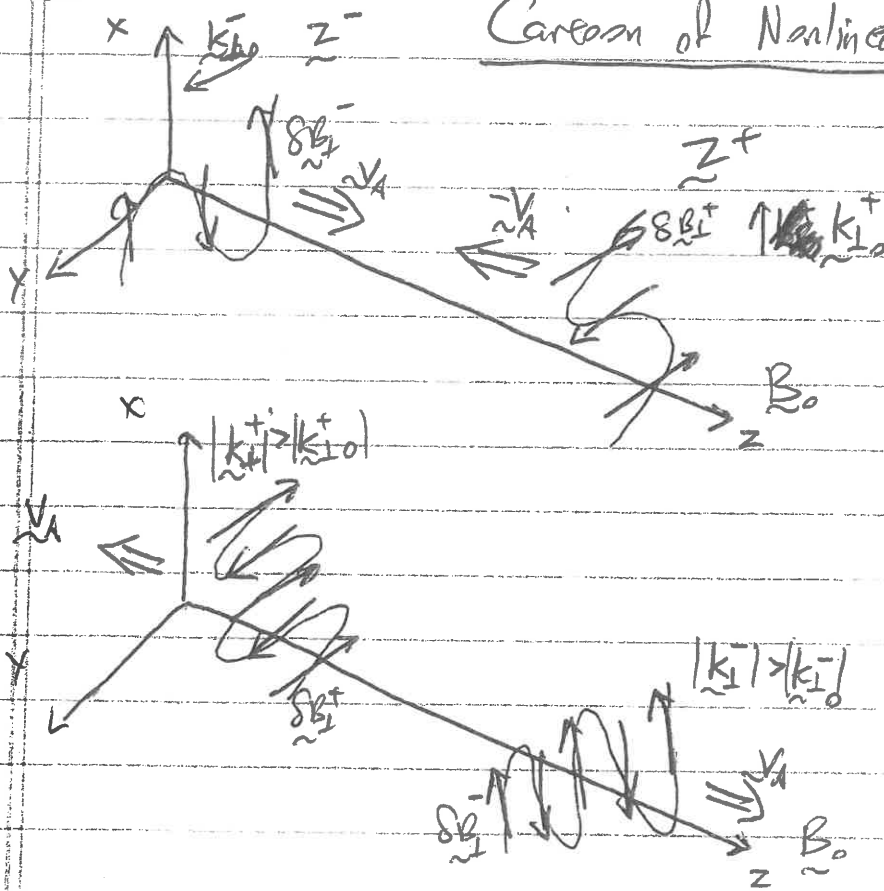 Cartoon of Nonline
x k⊥₀⁻ z⁻
δB⊥⁻ z⁺
v_A -v_A δB⊥⁺ k⊥₀⁺
y
B₀
z
x
|k⊥⁺|>|k⊥₀⁺|
v_A
y
|k⊥⁻|>|k⊥₀⁻|
δB⊥⁺
v_A
δB⊥⁻ B₀
z